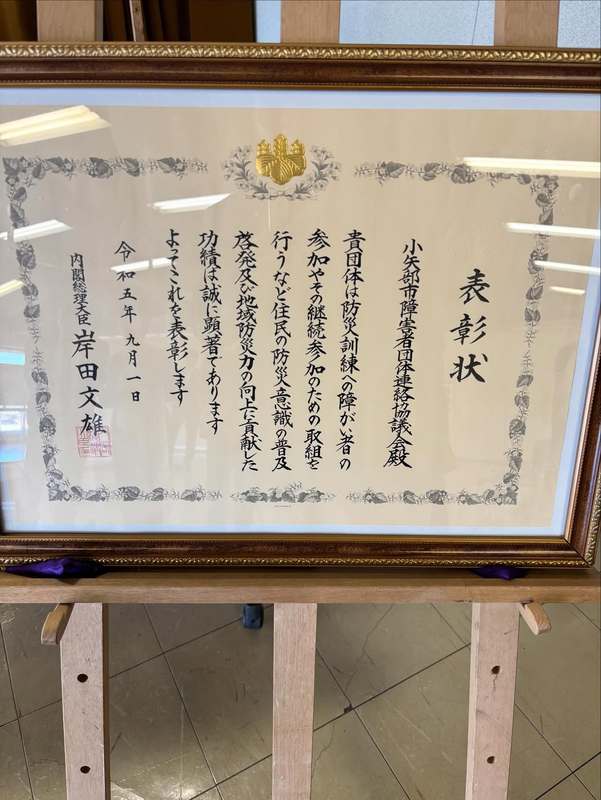 表彰状
小矢部市障害者団体連絡協議会殿
貴団体は防災訓練への障がい者の
参加やその継続参加のための取組を
行うなど住民の防災意識の普及
啓発及び地域防災力の向上に貢献した
功績は誠に顕著であります
よってこれを表彰します
令和五年九月一日
内閣総理大臣 岸田文雄